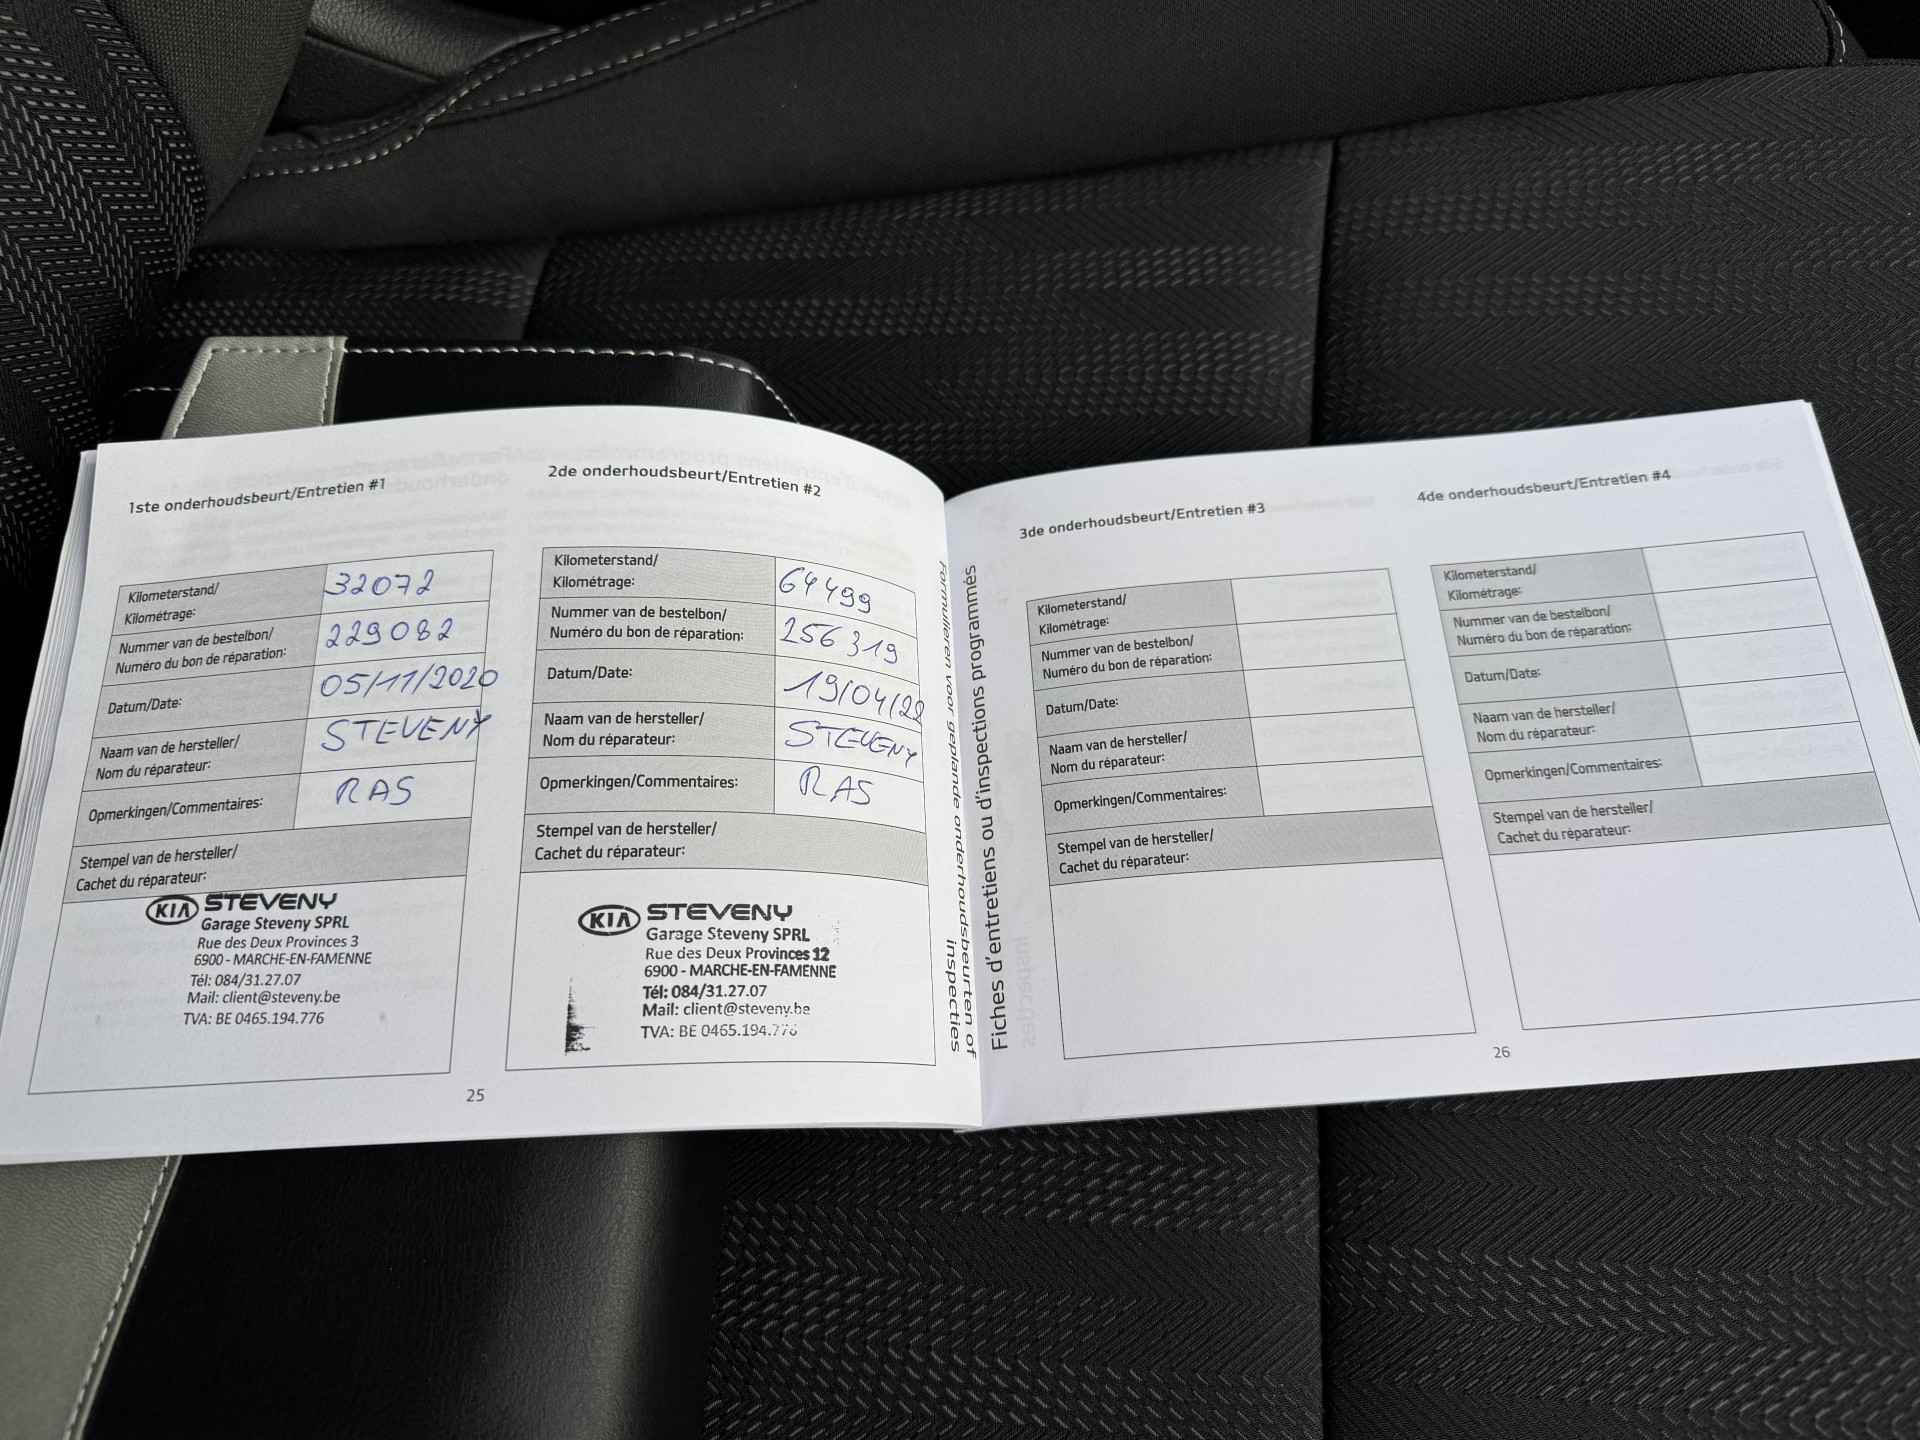 1ste onderhoudsbeurt/Entretien #1
Kilometerstand/
Kilométrage:
32072
Nummer van de bestelbon/
Numéro du bon de réparation:
229082
Datum/Date:
05/11/2020
Naam van de hersteller/
Nom du réparateur:
STEVENY
Opmerkingen/Commentaires:
RAS
Stempel van de hersteller/
Cachet du réparateur:
KIA STEVENY
Garage Steveny SPRL
Rue des Deux Provinces 3
6900 - MARCHE-EN-FAMENNE
Tél: 084/31.27.07
Mail: client@steveny.be
TVA: BE 0465.194.776
2de onderhoudsbeurt/Entretien #2
Kilometerstand/
Kilométrage:
64499
Nummer van de bestelbon/
Numéro du bon de réparation:
256319
Datum/Date:
19/04/22
Naam van de hersteller/
Nom du réparateur:
STEVENY
Opmerkingen/Commentaires:
RAS
Stempel van de hersteller/
Cachet du réparateur:
KIA STEVENY
Garage Steveny SPRL
Rue des Deux Provinces 12
6900 - MARCHE-EN-FAMENNE
Tél: 084/31.27.07
Mail: client@steveny.be
TVA: BE 0465.194.776
25
Formulieren voor geplande onderhoudsbeurten of
inspecties
Fiches d'entretiens ou d'inspections programmés
3de onderhoudsbeurt/Entretien #3
Kilometerstand/
Kilométrage:
Nummer van de bestelbon/
Numéro du bon de réparation:
Datum/Date:
Naam van de hersteller/
Nom du réparateur:
Opmerkingen/Commentaires:
Stempel van de hersteller/
Cachet du réparateur:
4de onderhoudsbeurt/Entretien #4
Kilometerstand/
Kilométrage:
Nummer van de bestelbon/
Numéro du bon de réparation:
Datum/Date:
Naam van de hersteller/
Nom du réparateur:
Opmerkingen/Commentaires:
Stempel van de hersteller/
Cachet du réparateur:
26